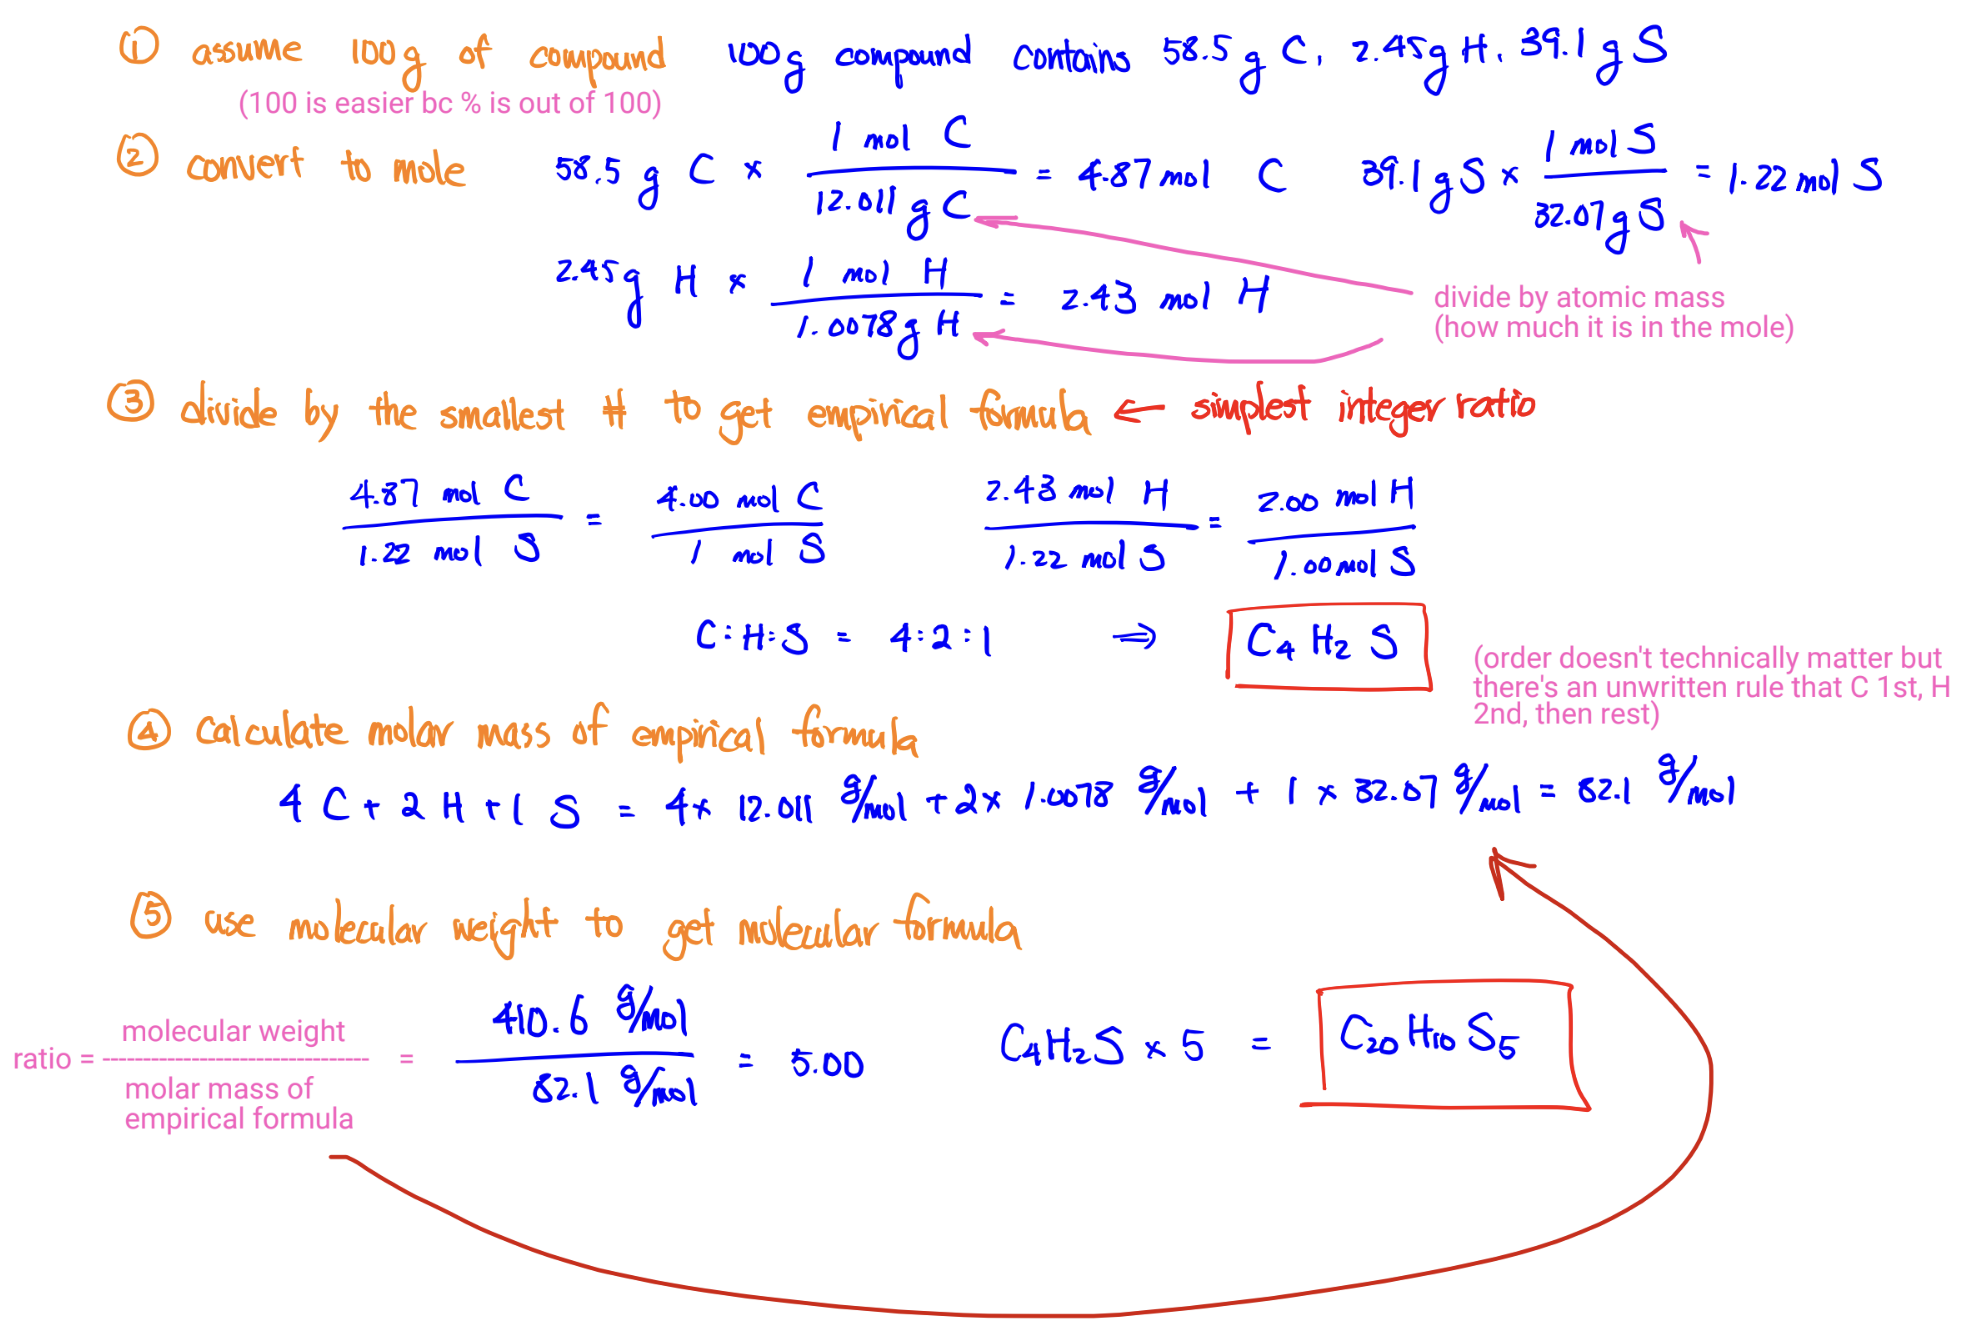 ① assume 100g of compound 100g compound contains 58.5g C, 2.45g H, 39.1g S
(100 is easier bc % is out of 100)
② convert to mole 58.5 g C × 1 mol C / 12.011 g C = 4.87 mol C 39.1 g S × 1 mol S / 32.07 g S = 1.22 mol S
2.45g H × 1 mol H / 1.0078 g H = 2.43 mol H
divide by atomic mass
(how much it is in the mole)
③ divide by the smallest # to get empirical formula ← simplest integer ratio
4.87 mol C / 1.22 mol S = 4.00 mol C / 1 mol S 2.43 mol H / 1.22 mol S = 2.00 mol H / 1.00 mol S
C:H:S = 4:2:1 ⇒ C₄ H₂ S
(order doesn't technically matter but
there's an unwritten rule that C 1st, H
2nd, then rest)
④ calculate molar mass of empirical formula
4 C + 2 H + 1 S = 4 × 12.011 g/mol + 2 × 1.0078 g/mol + 1 × 32.07 g/mol = 82.1 g/mol
⑤ use molecular weight to get molecular formula
ratio = molecular weight / molar mass of
empirical formula = 410.6 g/mol / 82.1 g/mol = 5.00 C₄H₂S × 5 = C₂₀H₁₀S₅